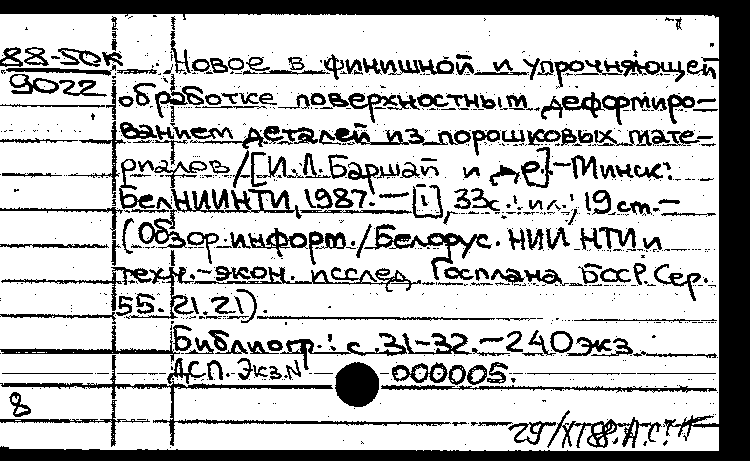 88-50к Новое в финишной и упрочняющей
9022 обработке поверхностным деформиро-
ванием деталей из порошковых мате-
риалов/[И.Л. Баршай и др.]. - Минск:
БелНИИНТИ, 1987. - [1], 33с.: ил.; 19 см. -
(Обзор. информ. / Белорус. НИИ НТИ и
техн.-экон. исслед. Госплана БССР. Сер.
55.21.21).
Библиогр.: с. 31-32. - 240 экз.
ДСП. Экз. N 000005.
8
29/XI 88.